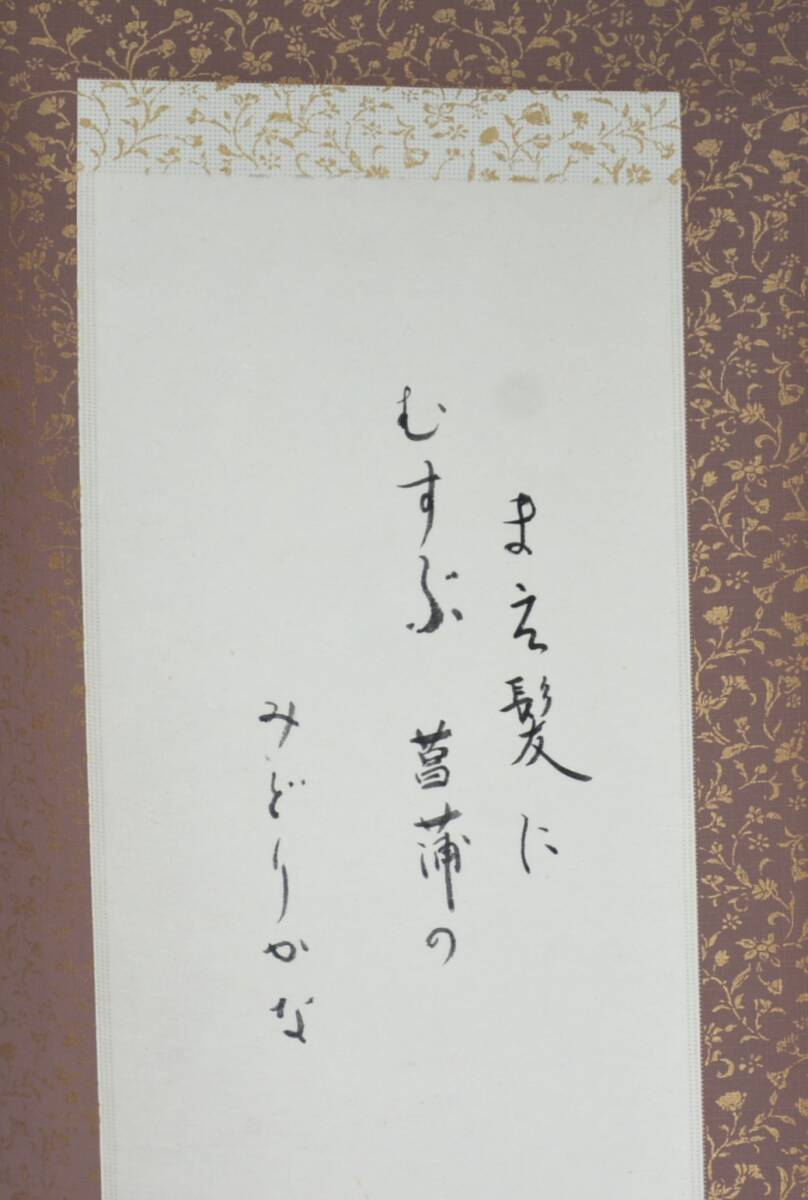 まへ髪に
むすぶ 菖蒲の
みどりかな